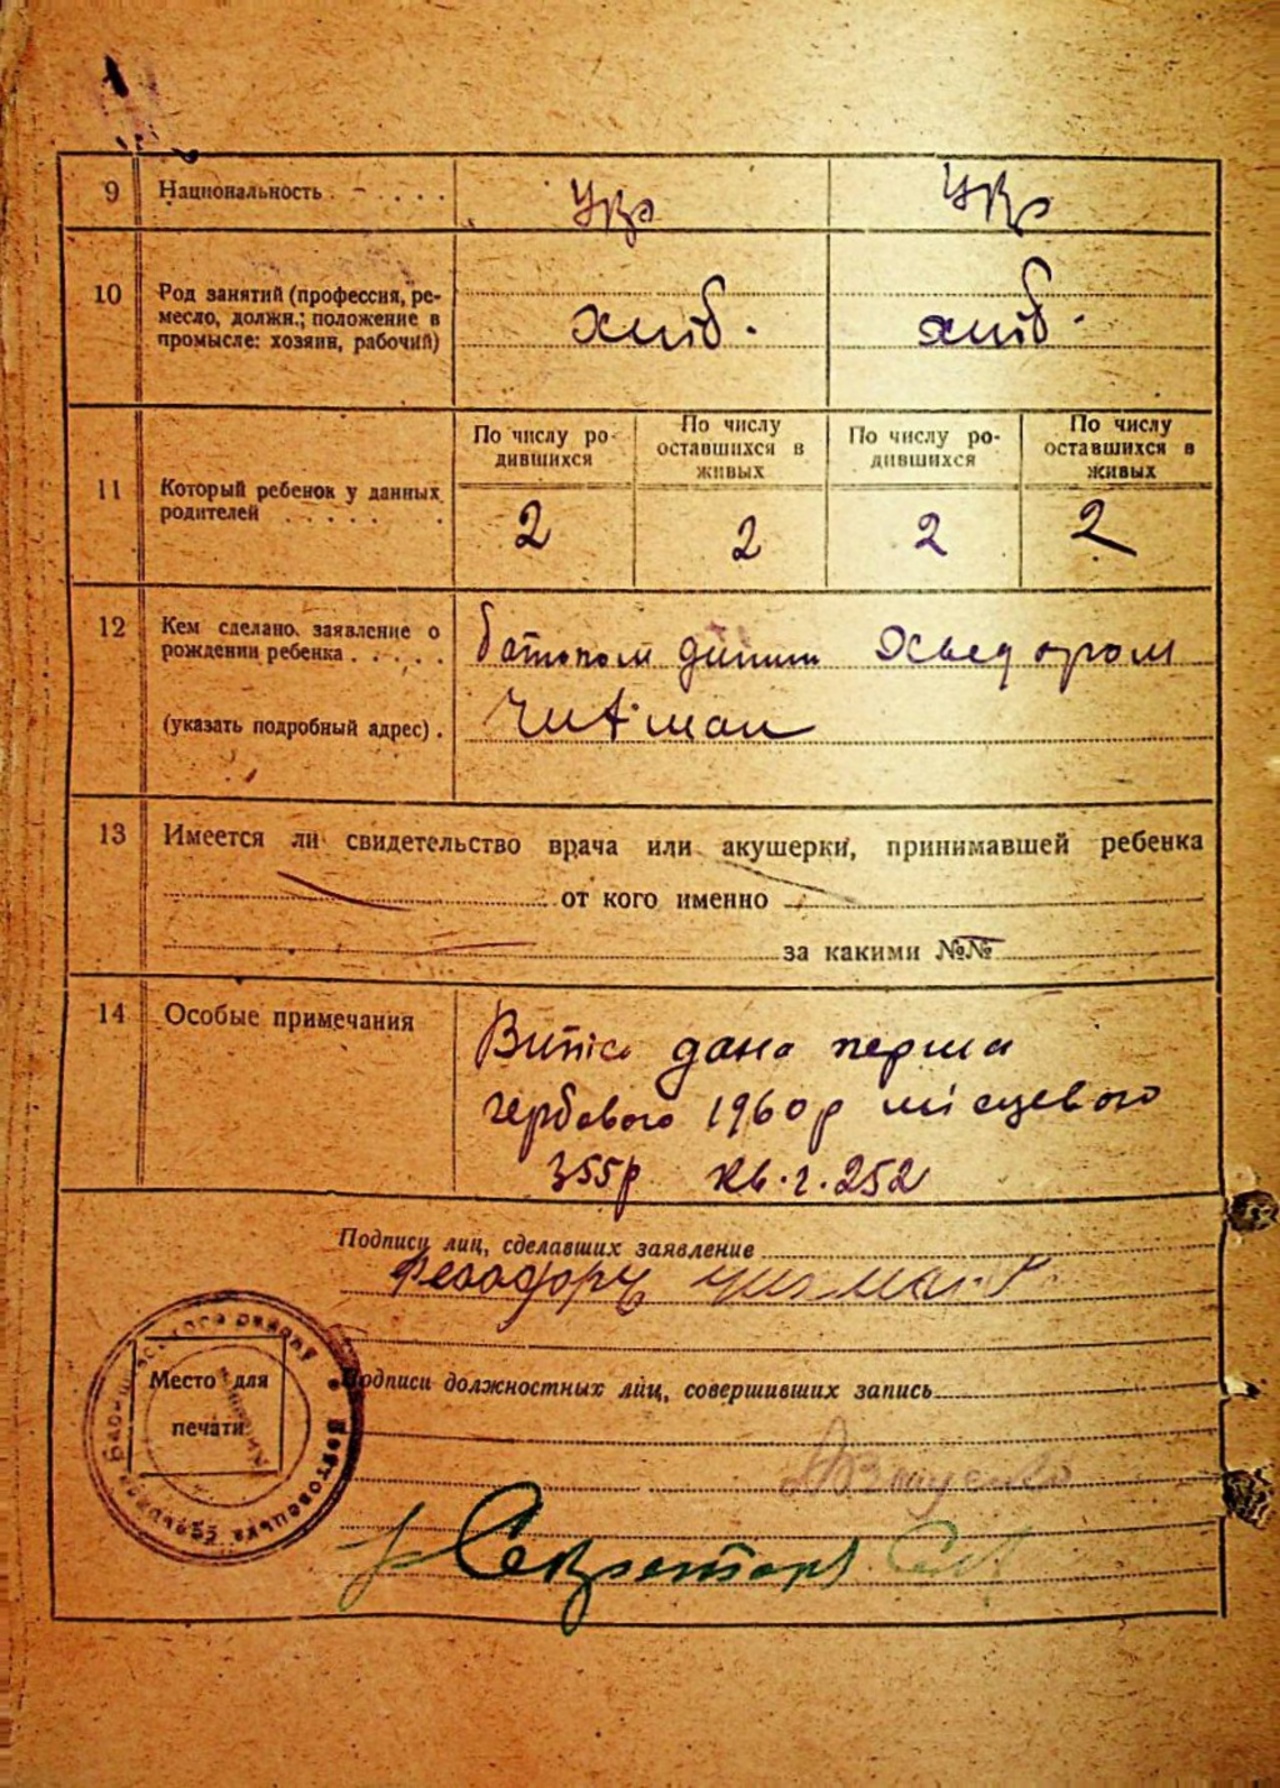 9 Национальность Укр Укр
10 Род занятий (профессия, ре-
месло, должн.; положение в
промысле: хозяин, рабочий)
хліб. хліб.
11 Который ребенок у данных
родителей
По числу ро-
дившихся
По числу
оставшихся в
живых
По числу ро-
дившихся
По числу
оставшихся в
живых
2 2 2 2
12 Кем сделано заявление о
рождении ребенка
(указать подробный адрес)
батьком
13 Имеется ли свидетельство врача или акушерки, принимавшей ребенка
от кого именно
за какими №№
14 Особые примечания
дана перша
1960р місцевого
355р кв. 252
Подписи лиц, сделавших заявление
Место для
печати
Подписи должностных лиц, совершивших запись
Секретарь